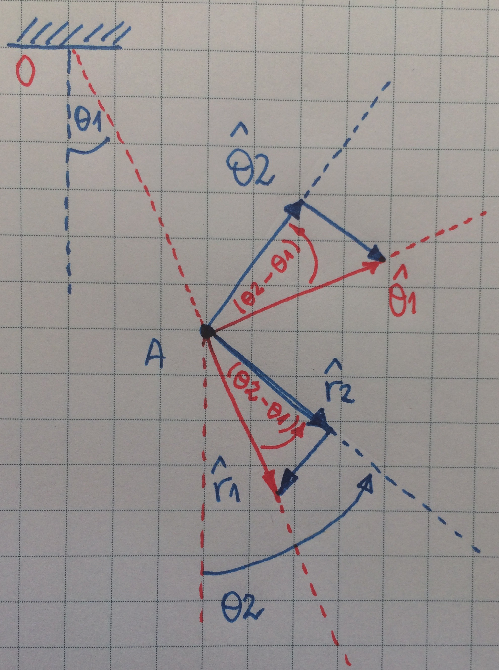 O
θ1
θ̂2
(θ2-θ1)
θ̂1
A
(θ2-θ1)
r̂2
r̂1
θ2